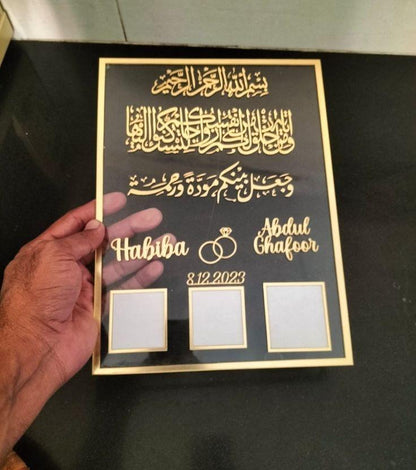 بسم الله الرحمن الرحيم
ومن آياته أن خلق لكم من أنفسكم أزواجا لتسكنوا إليها
وجعل بينكم مودة ورحمة
Habiba
Abdul
Ghafoor
8.12.2023